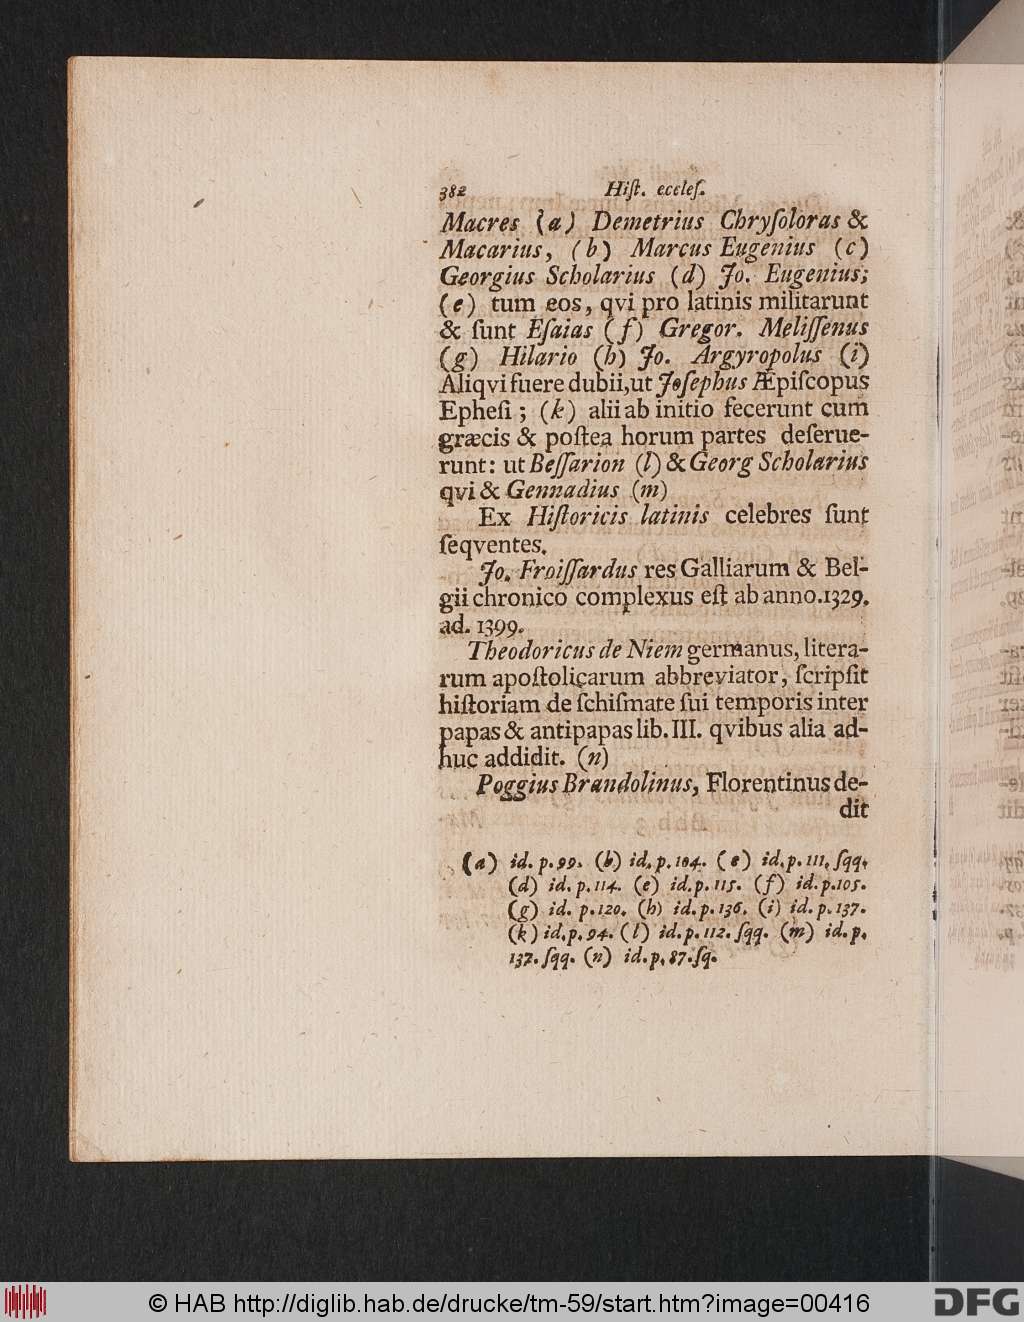 382 Hiſt. eccleſ.
Macres (a) Demetrius Chryſoloras &
Macarius, (b) Marcus Eugenius (c)
Georgius Scholarius (d) Jo. Eugenius;
(e) tum eos, qvi pro latinis militarunt
& ſunt Eſaias (f) Gregor. Meliſſenus
(g) Hilario (h) Jo. Argyropolus (i)
Aliqvi fuere dubii, ut Joſephus Æpiſcopus
Epheſi; (k) alii ab initio fecerunt cum
græcis & poſtea horum partes deſerue-
runt: ut Beſſarion (l) & Georg Scholarius
qvi & Gennadius (m)
Ex Hiſtoricis latinis celebres ſunt
ſeqventes.
Jo. Froiſſardus res Galliarum & Bel-
gii chronico complexus eſt ab anno.1329.
ad. 1399.
Theodoricus de Niem germanus, litera-
rum apoſtolicarum abbreviator, ſcripſit
hiſtoriam de ſchiſmate ſui temporis inter
papas & antipapas lib. III. qvibus alia ad-
huc addidit. (n)
Poggius Brandolinus, Florentinus de-
dit
(a) id. p. 99. (b) id. p. 104. (c) id. p. 111. ſqq.
(d) id. p. 114. (e) id. p. 115. (f) id. p. 105.
(g) id. p. 120. (h) id. p. 136. (i) id. p. 137.
(k) id. p. 94. (l) id. p. 112. ſqq. (m) id. p.
137. ſqq. (n) id. p. 87. ſq.
© HAB http://diglib.hab.de/drucke/tm-59/start.htm?image=00416
DFG